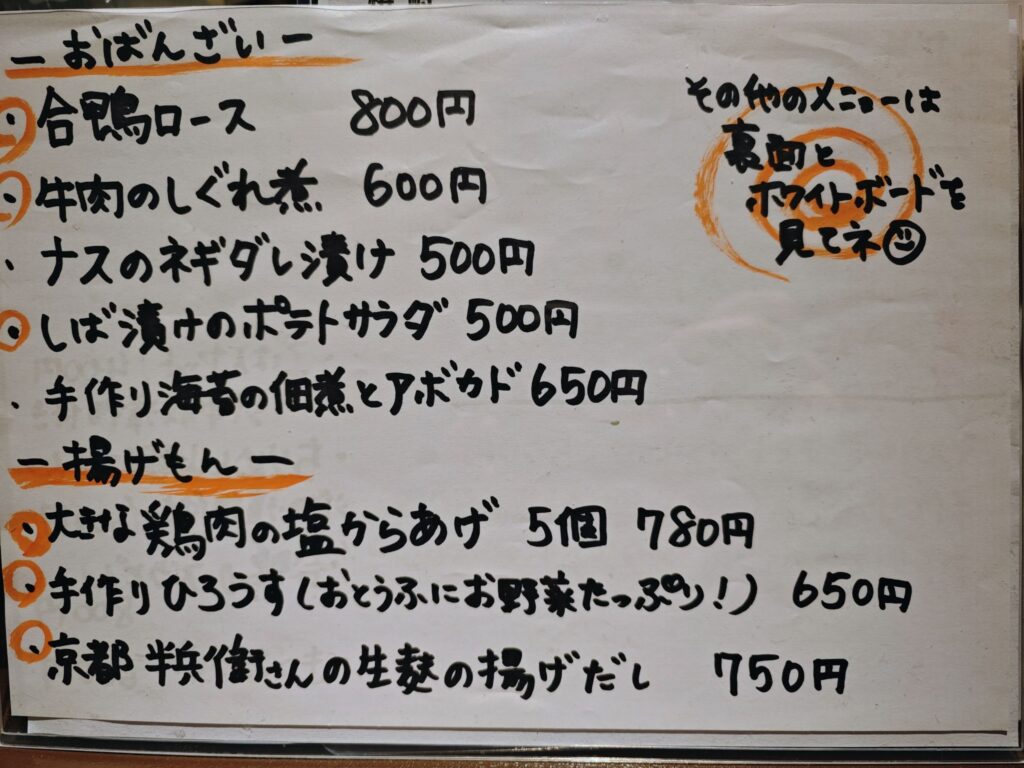 ーおばんざいー
・合鴨ロース 800円
・牛肉のしぐれ煮 600円
・ナスのネギダレ漬け 500円
・しば漬けのポテトサラダ 500円
・手作り海苔の佃煮とアボカド 650円
ー揚げもんー
・大きな鶏肉の塩からあげ 5個 780円
・手作りひろうす(おとうふにお野菜たっぷり!) 650円
・京都 半兵衛さんの生麩の揚げだし 750円
その他のメニューは
裏面と
ホワイトボードを
見てネ